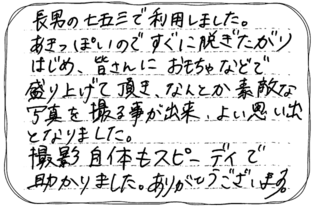 長男の七五三で利用しました。
あきっぽいのですぐに脱ぎたがり
はじめ、皆さんにおもちゃなどで
盛り上げて頂き、なんとか素敵な
写真を撮る事が出来、よい思い出
となりました。
撮影自体もスピーディで
助かりました。ありがとうございます。